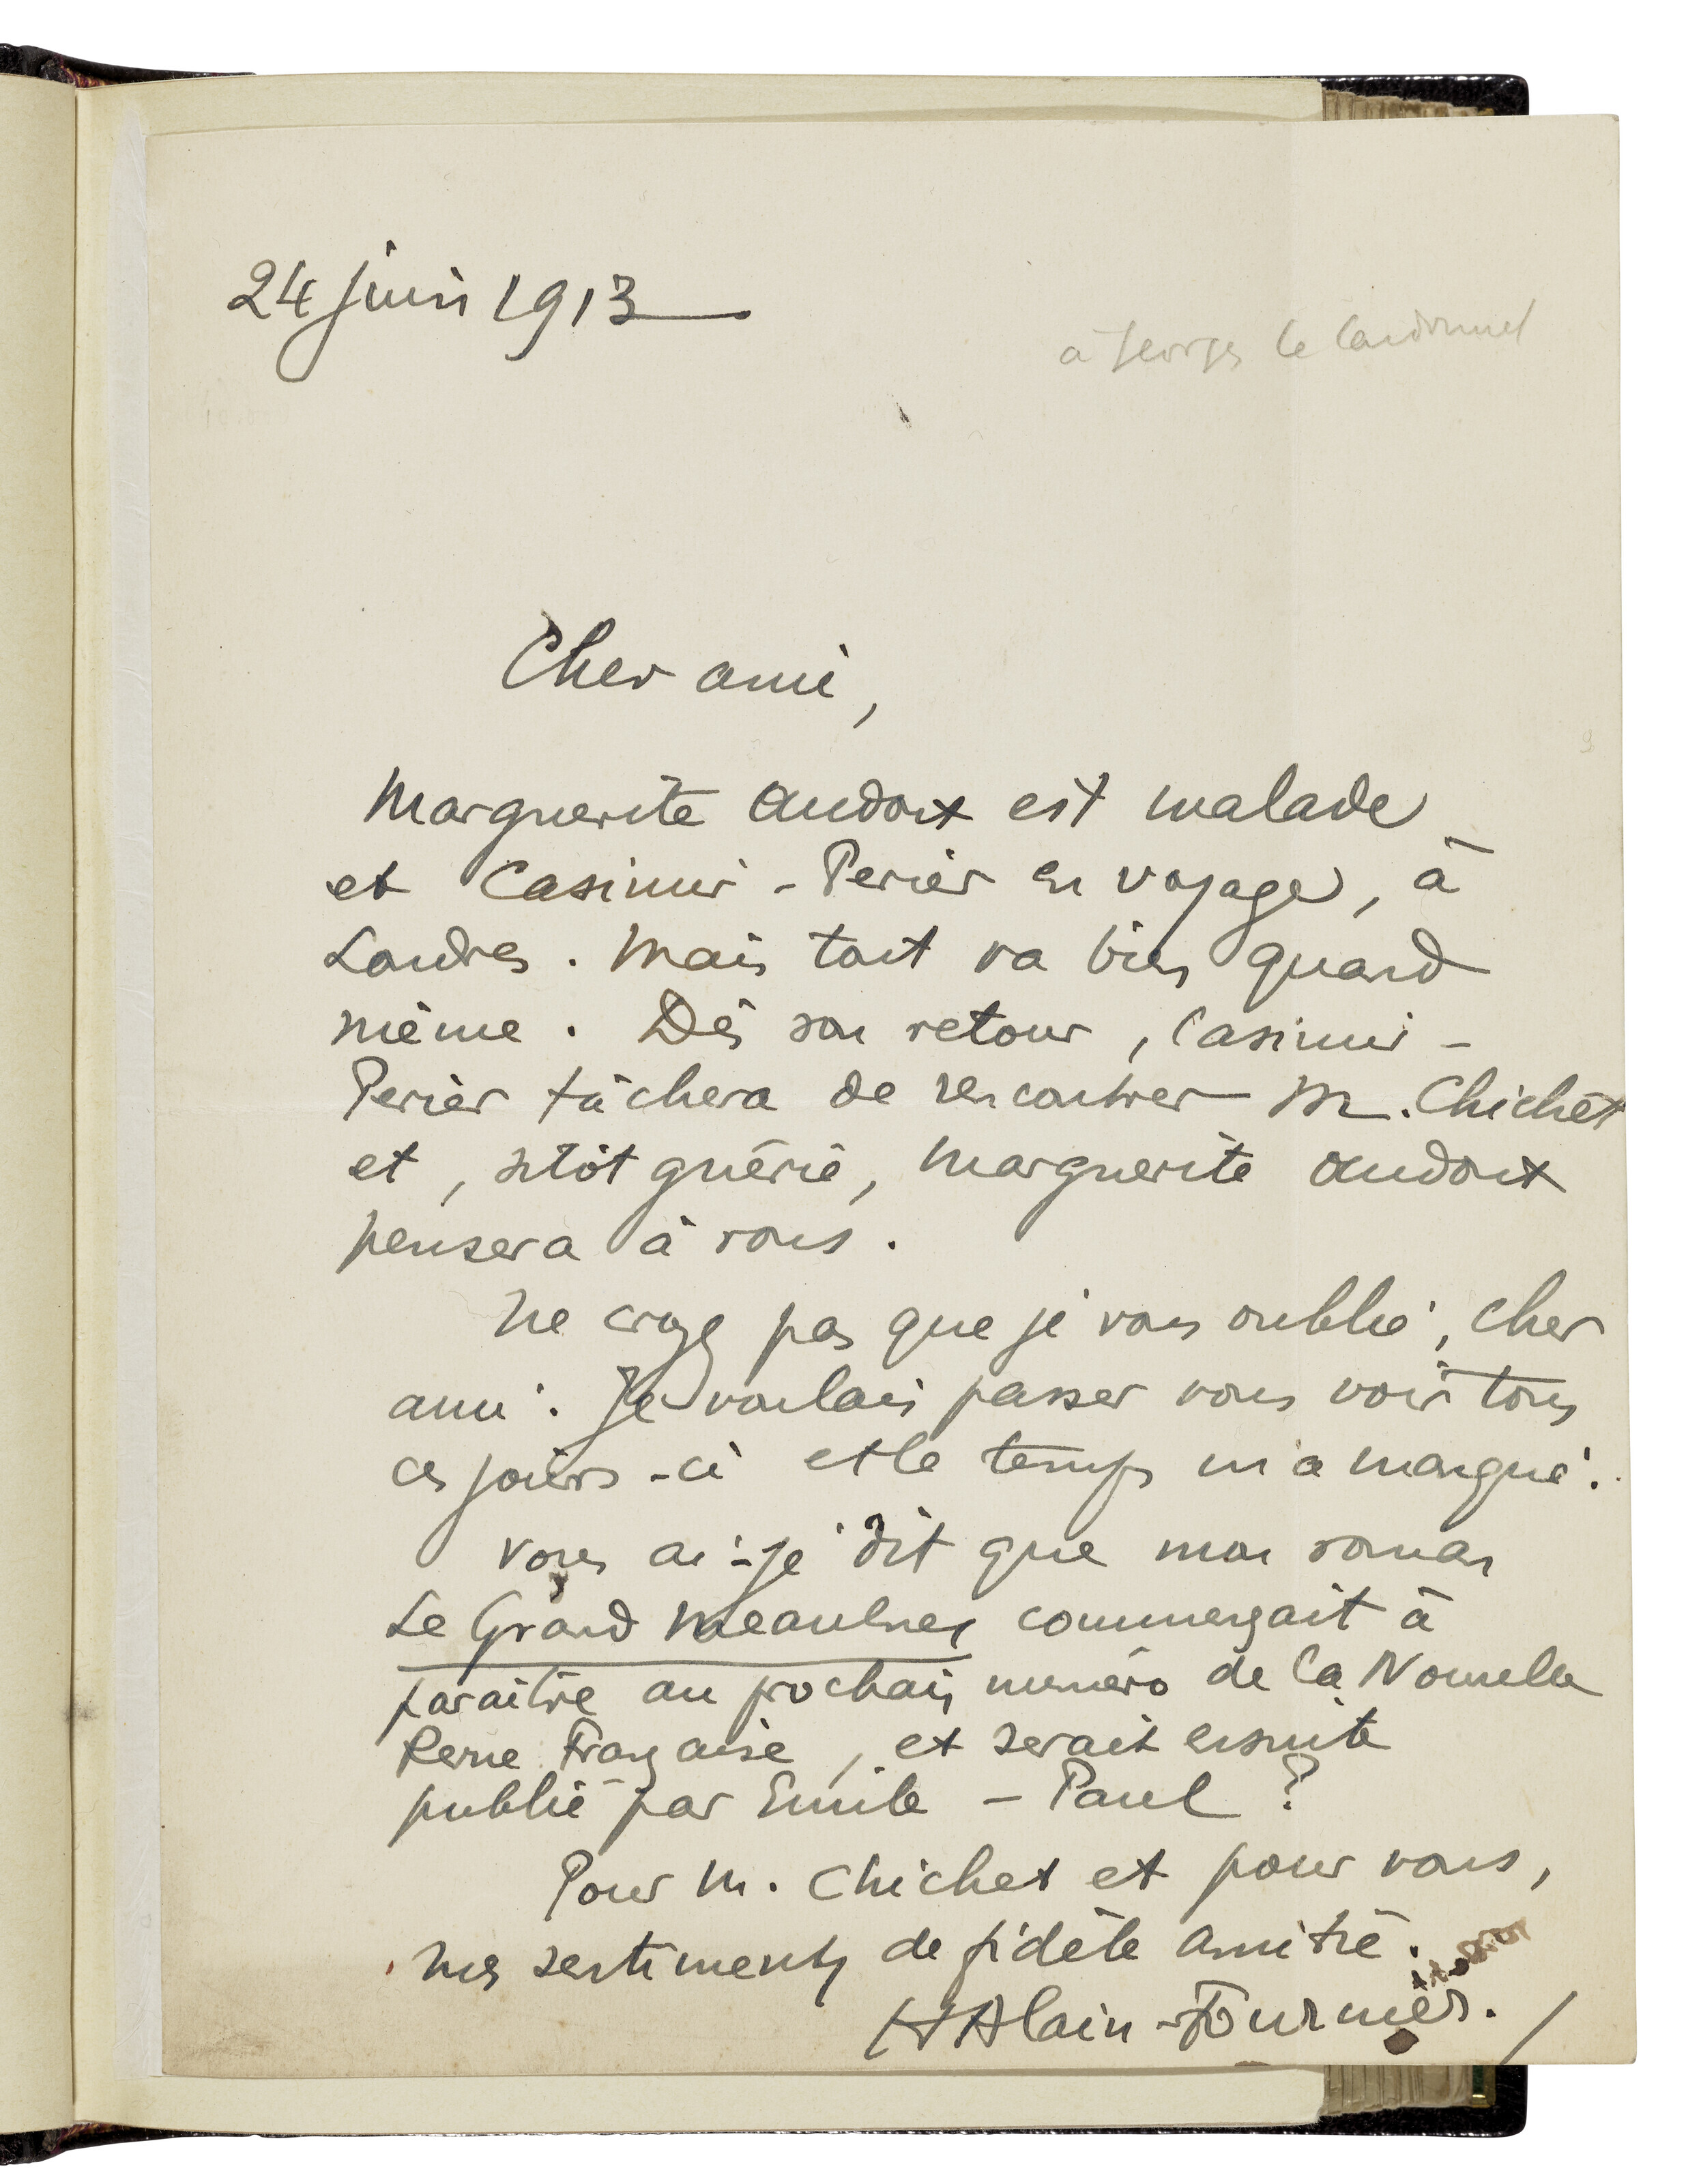 24 juin 1913
à Georges Le Cardonnel
Cher ami,
Marguerite Audoux est malade
et Casimir-Perier en voyage, à
Londres. Mais tout va bien quand
même. Dès son retour, Casimir-
Perier tâchera de rencontrer M. Chichet
et, sitôt guérie, Marguerite Audoux
pensera à vous.
Ne croyez pas que je vous oublie, cher
ami. Je voulais passer vous voir tous
ces jours-ci et le temps m'a manqué.
Vous ai-je dit que mon roman
Le Grand Meaulnes commençait à
paraître au prochain numéro de la Nouvelle
Revue Française, et serait ensuite
publié par Emile-Paul ?
Pour M. Chichet et pour vous,
mes sentiments de fidèle amitié.
H Alain-Fournier.